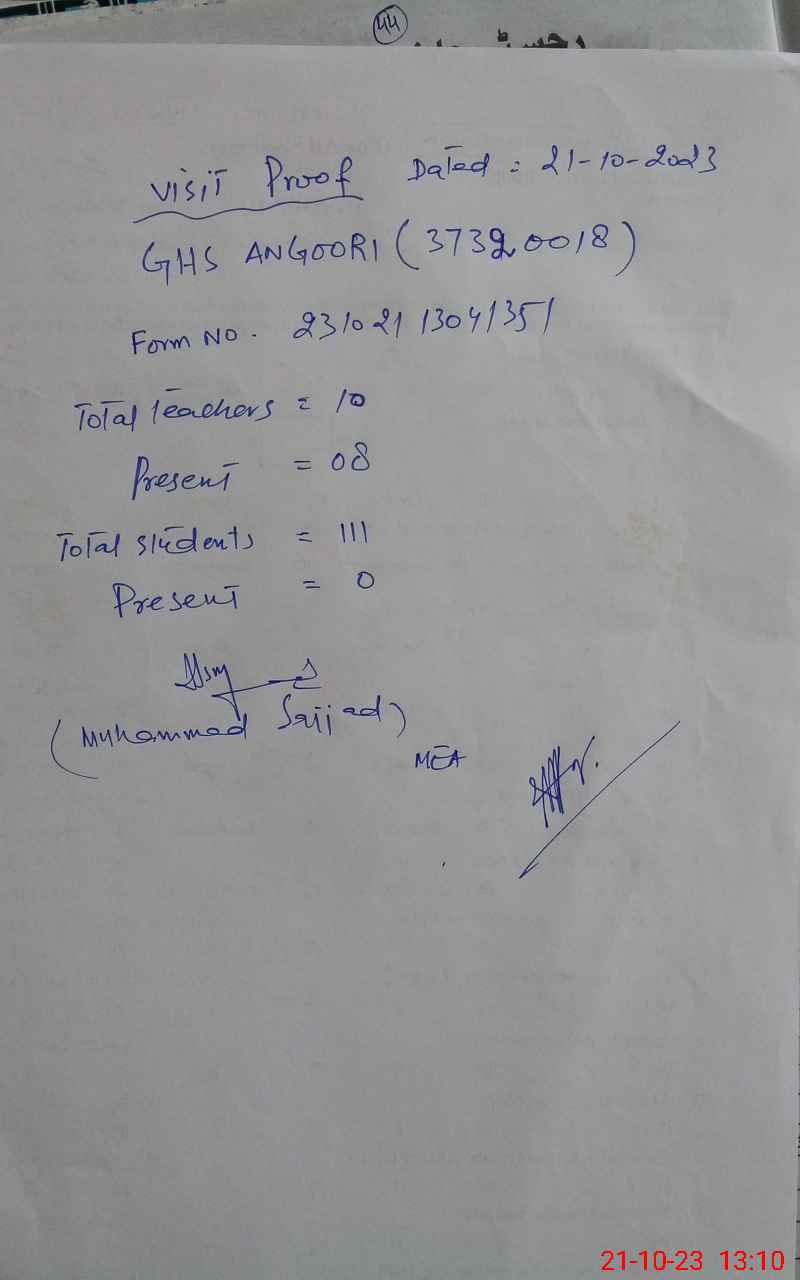 44
Visit Proof Dated : 21-10-2023
GHS ANGOORI (37320018)
Form No. 23102113041351
Total teachers = 10
Present = 08
Total students = 111
Present = 0
(Muhammad Sajjad)
MEA
21-10-23 13:10